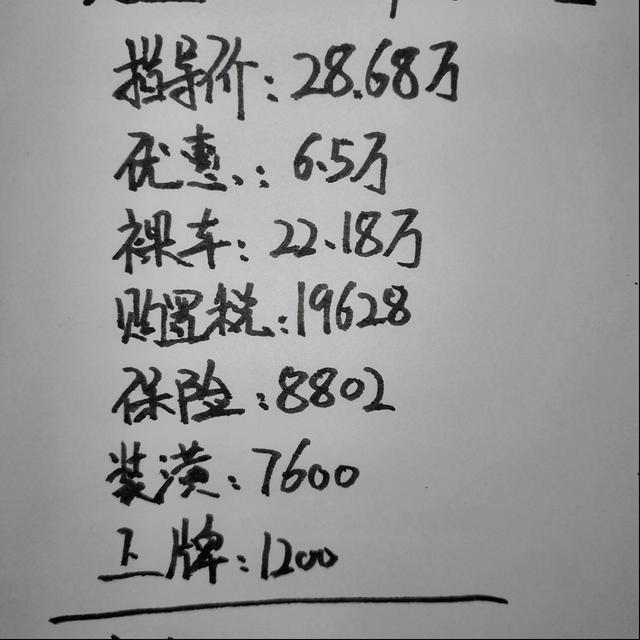 指导价：28.68万
优惠：6.5万
裸车：22.18万
购置税：19628
保险：8802
装潢：7600
上牌：1200